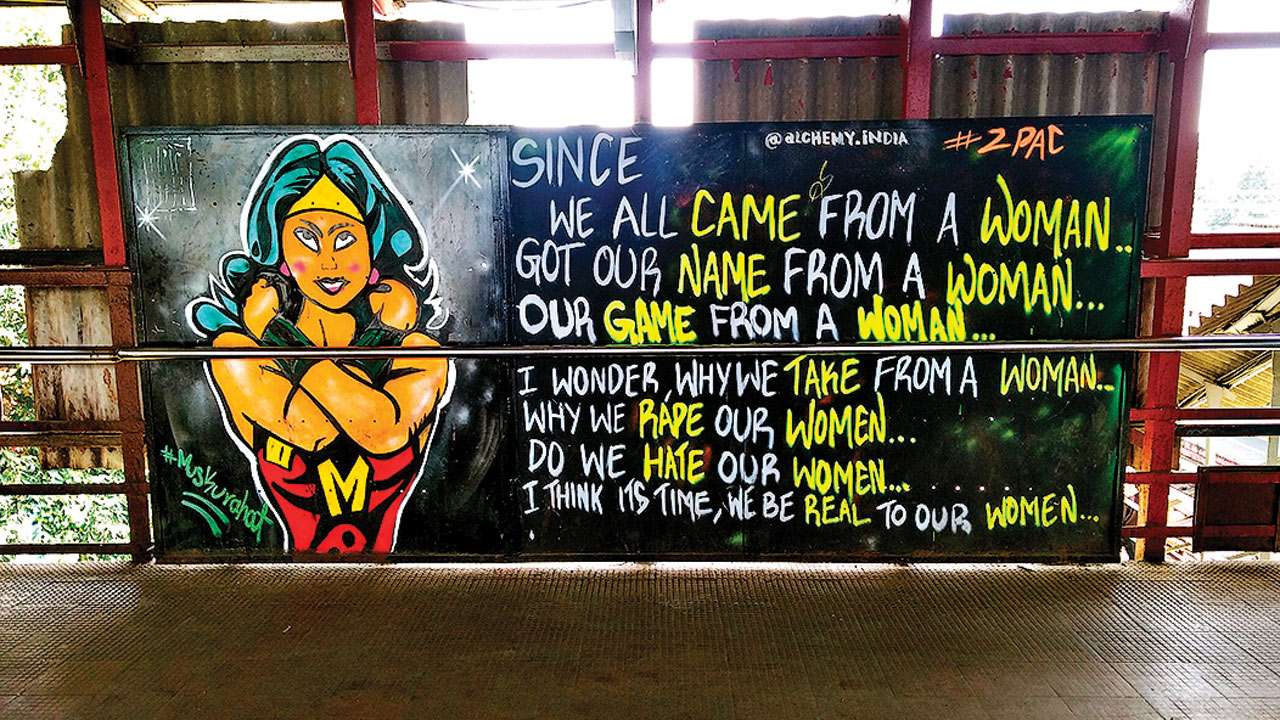 @ALCHEMY.INDIA
#2PAC
SINCE
WE ALL CAME FROM A WOMAN..
GOT OUR NAME FROM A WOMAN...
OUR GAME FROM A WOMAN...
I WONDER, WHY WE TAKE FROM A WOMAN...
WHY WE RAPE OUR WOMEN...
DO WE HATE OUR WOMEN...
I THINK ITS TIME, WE BE REAL TO OUR WOMEN...
#Muskurahat
M